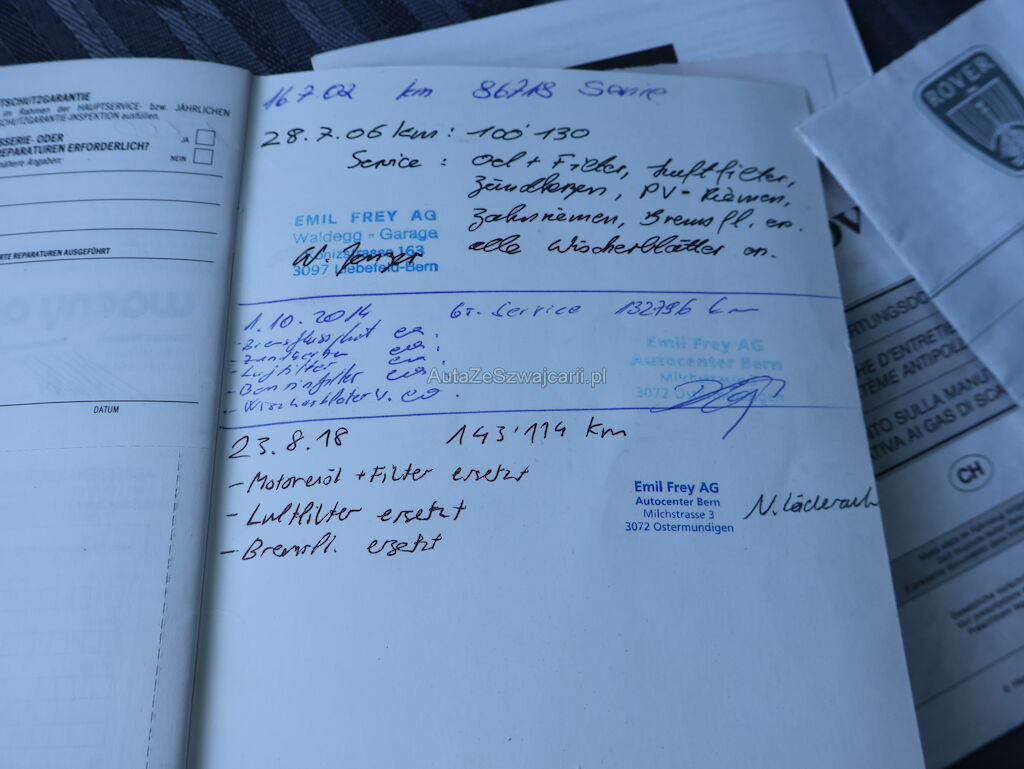 TSCHUTZGARANTIE
im Rahmen der HAUPTSERVICE- bzw. JÄHRLICHEN
CHUTZGARANTIE-INSPEKTION ausfüllen.
SSERIE- ODER
EPARATUREN ERFORDERLICH?
nähere Angaben:
JA
NEIN
RTE REPARATUREN AUSGEFÜHRT
DATUM
16.7.02 km 86718 Service
28.7.06 km: 100'130
Service: Oel + Filter, Luftfilter,
Zündkerzen, PV-Riemen,
Zahnriemen, Bremsfl. er.
alle Wischerblätter er.
EMIL FREY AG
Waldegg - Garage
163
3097 Liebefeld-Bern
1.10.2014 Gr. Service 132796 km
- Bremsflüssigkeit er.
- Zündkerzen er.
- Luftfilter er.
- Benzinfilter er.
- Wischerblätter v. er.
Emil Frey AG
Autocenter Bern
Milchstrasse
3072 Ostermundigen
AutaZeSzwajcarii.pl
23.8.18 143'114 km
- Motorenöl + Filter ersetzt
- Luftfilter ersetzt
- Bremsfl. ersetzt
Emil Frey AG
Autocenter Bern
Milchstrasse 3
3072 Ostermundigen
N. Läderach
ROVER
RTUNGSDO
E D'ENTRETIE
TÈME ANTIPOLL
TO SULLA MANUT
ATIVA AI GAS DI SCA
CH